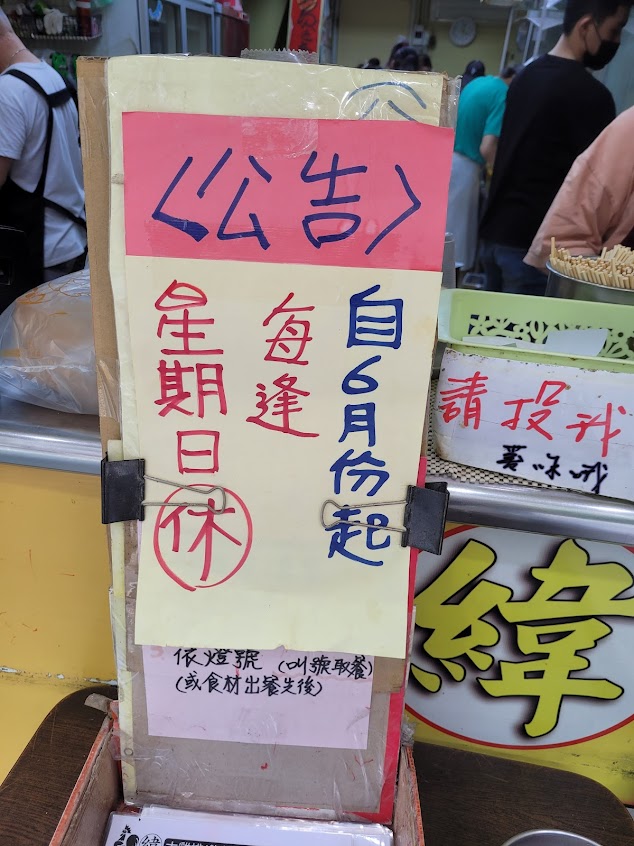 〈公告〉
自6月份起
每逢
星期日休
依燈號(叫號取餐)
(或食材出餐先後)
請投我
緯
緯